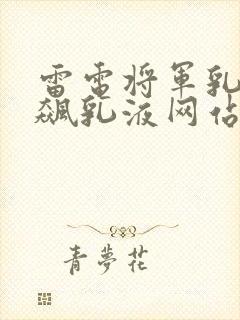 雷电将军乳
飙乳液网站
青夢花